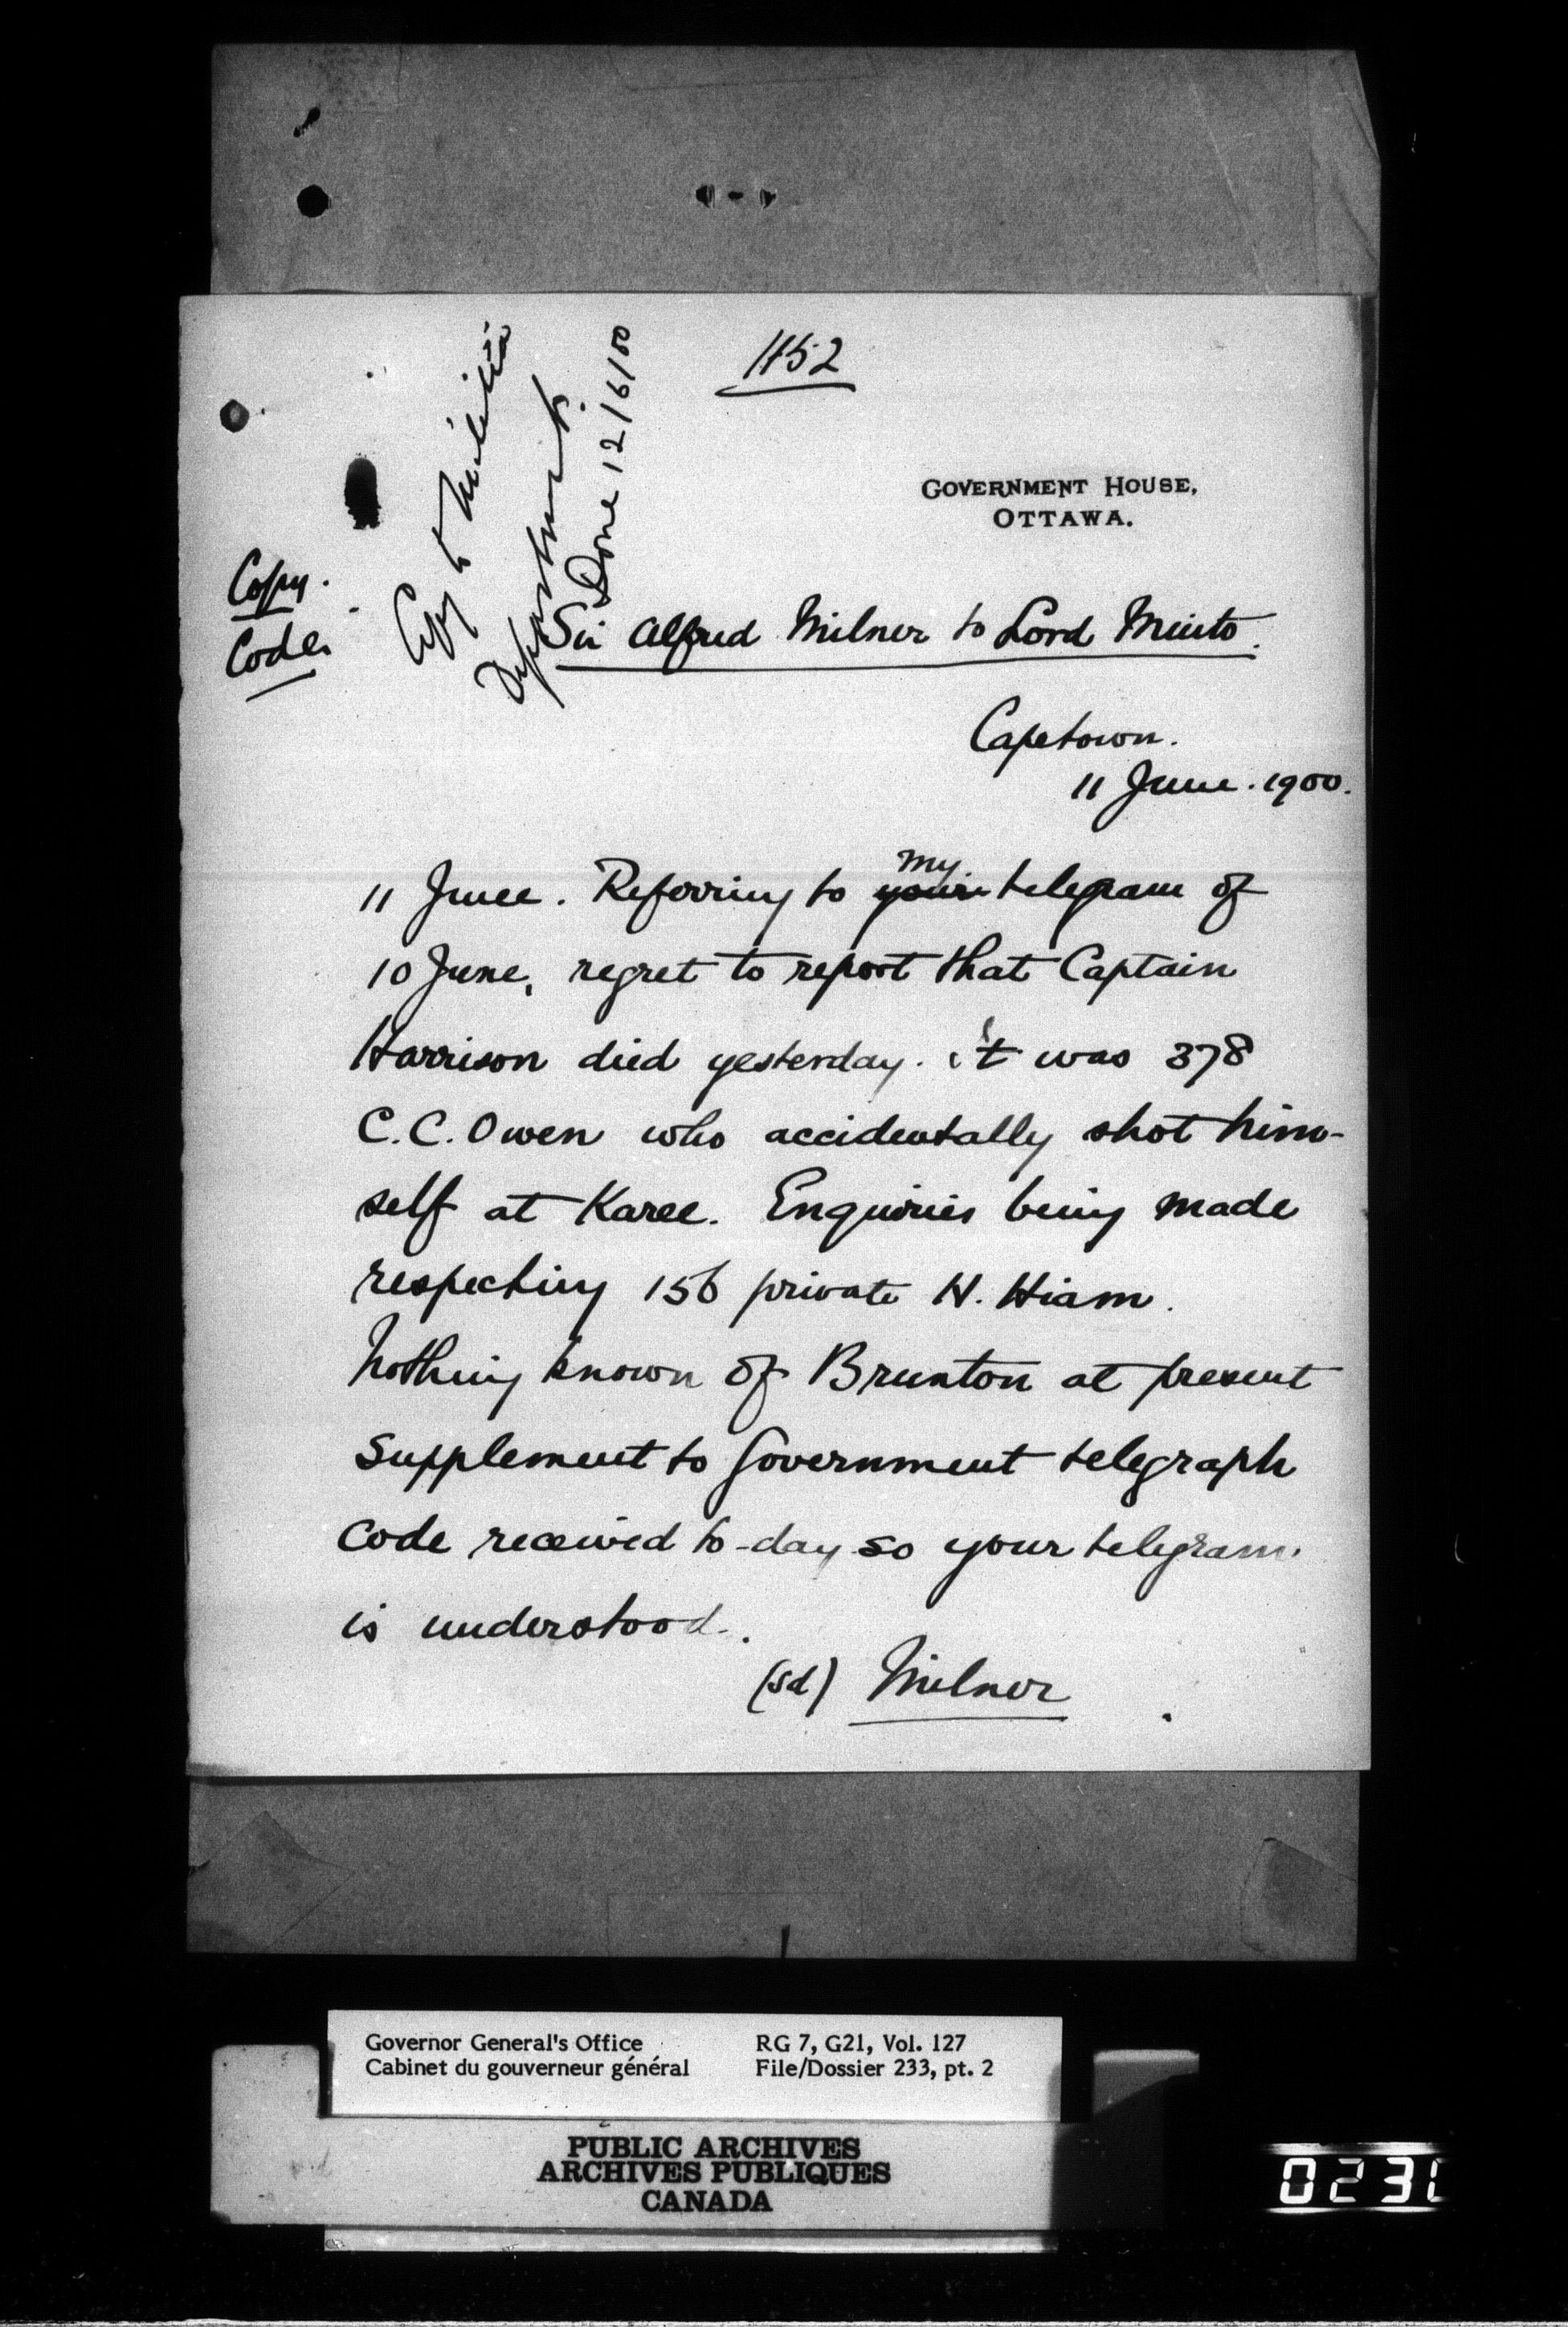 1152
Copy to Militia
Department.
Done 12/6/00
GOVERNMENT HOUSE,
OTTAWA.
Copy.
Code.
Sir Alfred Milner to Lord Minto.
Capetown.
11 June. 1900.
my
11 June. Referring to your telegram of
10 June, regret to report that Captain
Harrison died yesterday. it was 378
C.C. Owen who accidentally shot him-
self at Karee. Enquiries being made
respecting 156 private H. Hiam.
Nothing known of Brunton at present
Supplement to Government telegraph
Code received to-day so your telegram
is understood.
(sd) Milner
Governor General's Office RG 7, G21, Vol. 127
Cabinet du gouverneur général File/Dossier 233, pt. 2
PUBLIC ARCHIVES
ARCHIVES PUBLIQUES
CANADA